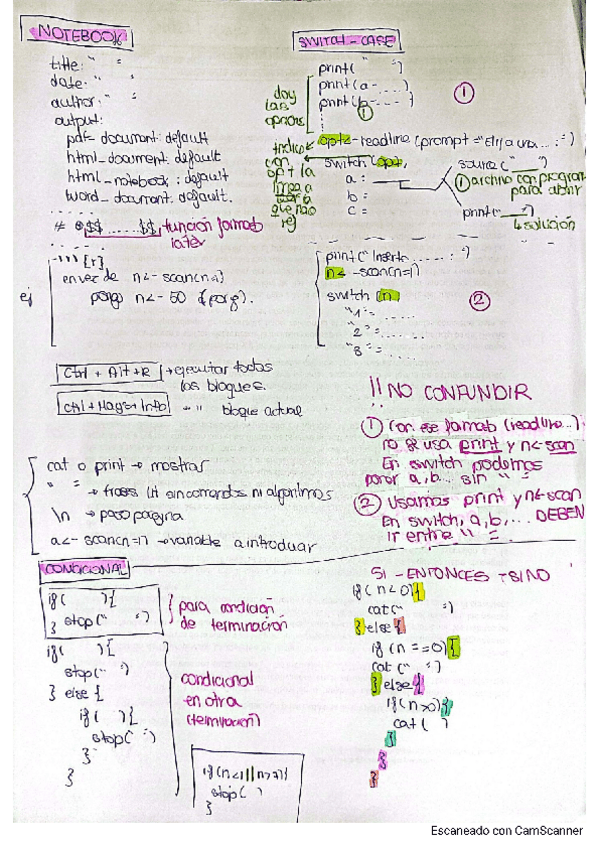 NOTEBOOK
title: " "
date: " "
author: " "
output:
pdf_document: default
html_document: default
html_notebook: default
word_document: default.
$$ ...... $$ función formato
latex
``` {r}
ej
en vez de n<- scan(n=1)
pongo n<- 50 (por ej).
Ctrl + Alt + R → ejecutar todos
los bloques.
Ctrl + Mayus + Intro → " bloque actual
cat o print → mostrar
" " → frases lit sin comandos ni algoritmos
\n → paso página
a<- scan(n=1) → variable a introducir
SWITCH - CASE
print(" ")
print(a - ...)
print(b - ...)
doy
las
opciones
①
①
opt<-readline(prompt = "Elija una ... : ")
indico
con
opt la
línea a
switch (opt,
a :
b =
c =
source(" ")
① archivo con programa
para abrir
print(" ")
↳ solución
print(" Inserte ...... : ")
n<-scan(n=1)
switch (n
"1" = .....
"2" = .....
"3" = ....
②
!! NO CONFUNDIR
① Con ese formato (readline...)
no se usa print y n<-scan
En switch podemos
poner a, b... sin " "
② Usamos print y n<-scan
En switch, a, b, ... DEBEN
ir entre " "
CONDICIONAL
if( ){
} stop(" ")
para condición
de terminación
if( ){
stop(" ")
} else {
if( ){
stop(" ")
}
}
condicional
en otra
(terminación)
if(n<1 || n>7){
stop( )
}
SI - ENTONCES - SI NO
if(n<0){
cat(" ")
} else {
if (n==0){
cat (" ")
} else {
if(n>0){
cat( )
}
}
}
Escaneado con CamScanner